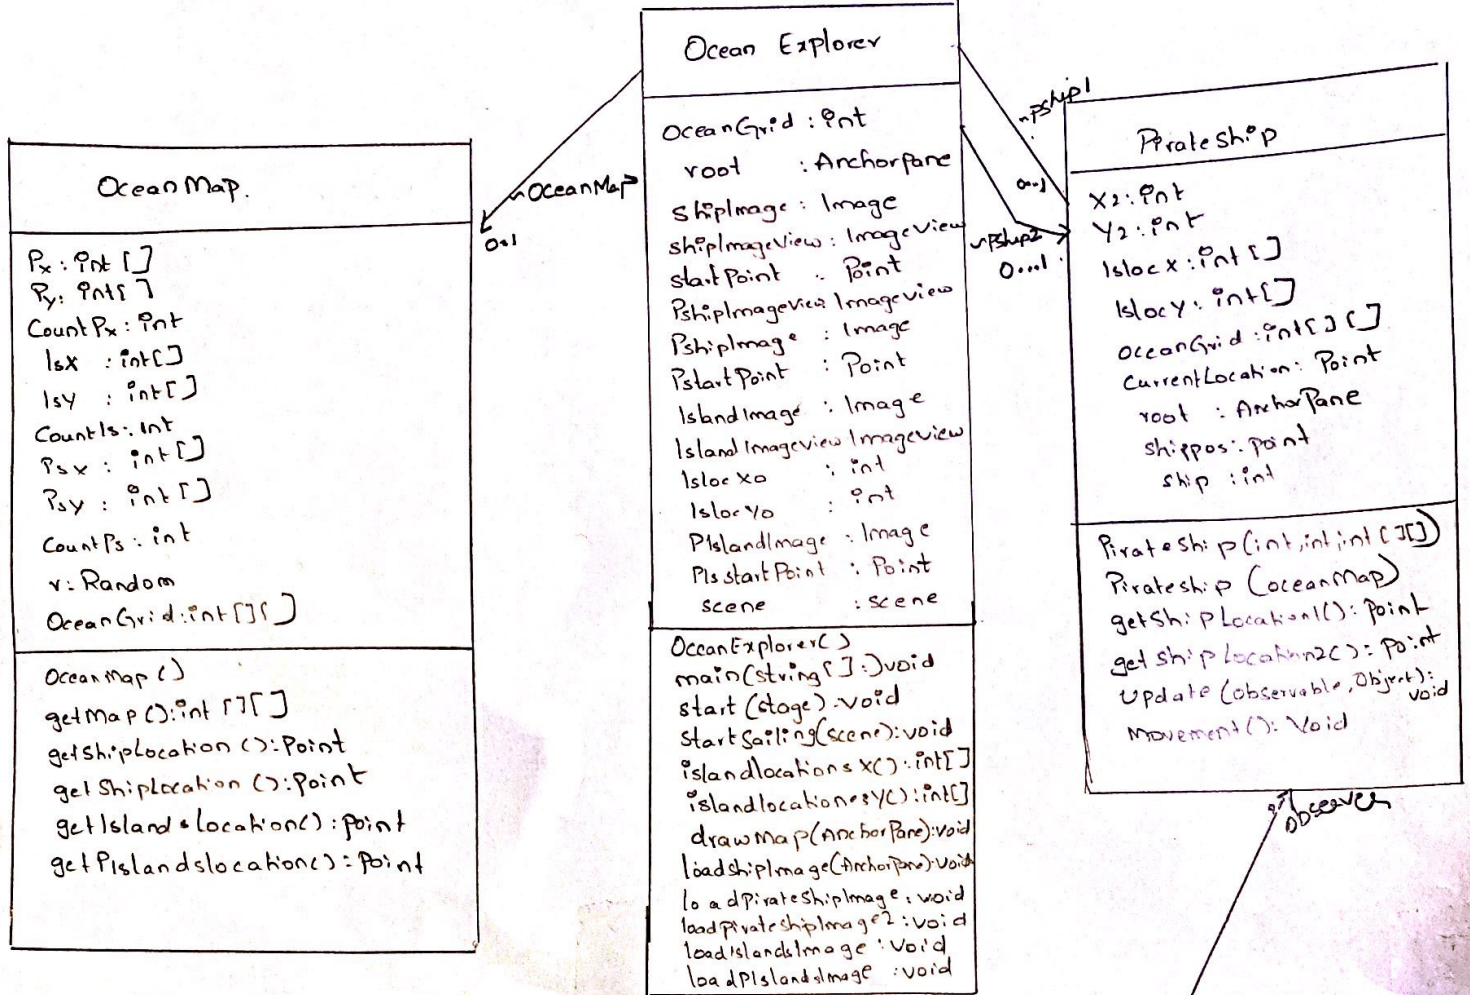 OceanMap.
Px : int []
Py : int[]
CountPx : int
Isx : int[]
Isy : int[]
CountIs : int
Psx : int[]
Psy : int[]
CountPs : int
r : Random
OceanGrid : int[][]
OceanMap ()
getMap () : int [][]
getshipLocation () : Point
getShipLocation () : Point
getIslandslocation() : point
getPIslandslocation() : Point
~OceanMap
0..1
Ocean Explorer
OceanGrid : int
root : Anchorpane
ShipImage : Image
shipImageView : ImageView
startPoint : Point
PshipImageView ImageView
PshipImage : Image
PstartPoint : Point
IslandImage : Image
IslandImageview Imageview
IslocXo : int
IslocYo : int
PIslandImage : Image
PIsstartPoint : Point
scene : scene
OceanExplorer()
main(string[] :)void
start (stage) : void
startsailing(scene) : void
islandlocationsX() : int[]
islandlocationesY() : int[]
drawMap(AnchorPane):void
loadshipImage(AnchorPane):void
loadPirateShipImage : void
loadpirateshipImage2 : void
loadislandsImage : void
loadPIslandsImage : void
~pship1
0..1
~Pship2
0...1
PirateShip
X2 : int
Y2 : int
IslocX : int []
IslocY : int[]
oceanGrid : int[][]
CurrentLocation : Point
root : AnchorPane
shippos : point
ship : int
PirateShip(int,int,int[][])
Pirateship (oceanMap)
getShipLocation1() : Point
getShipLocation2() : Point
Update (observable, Object) :
void
Movement() : Void
observer